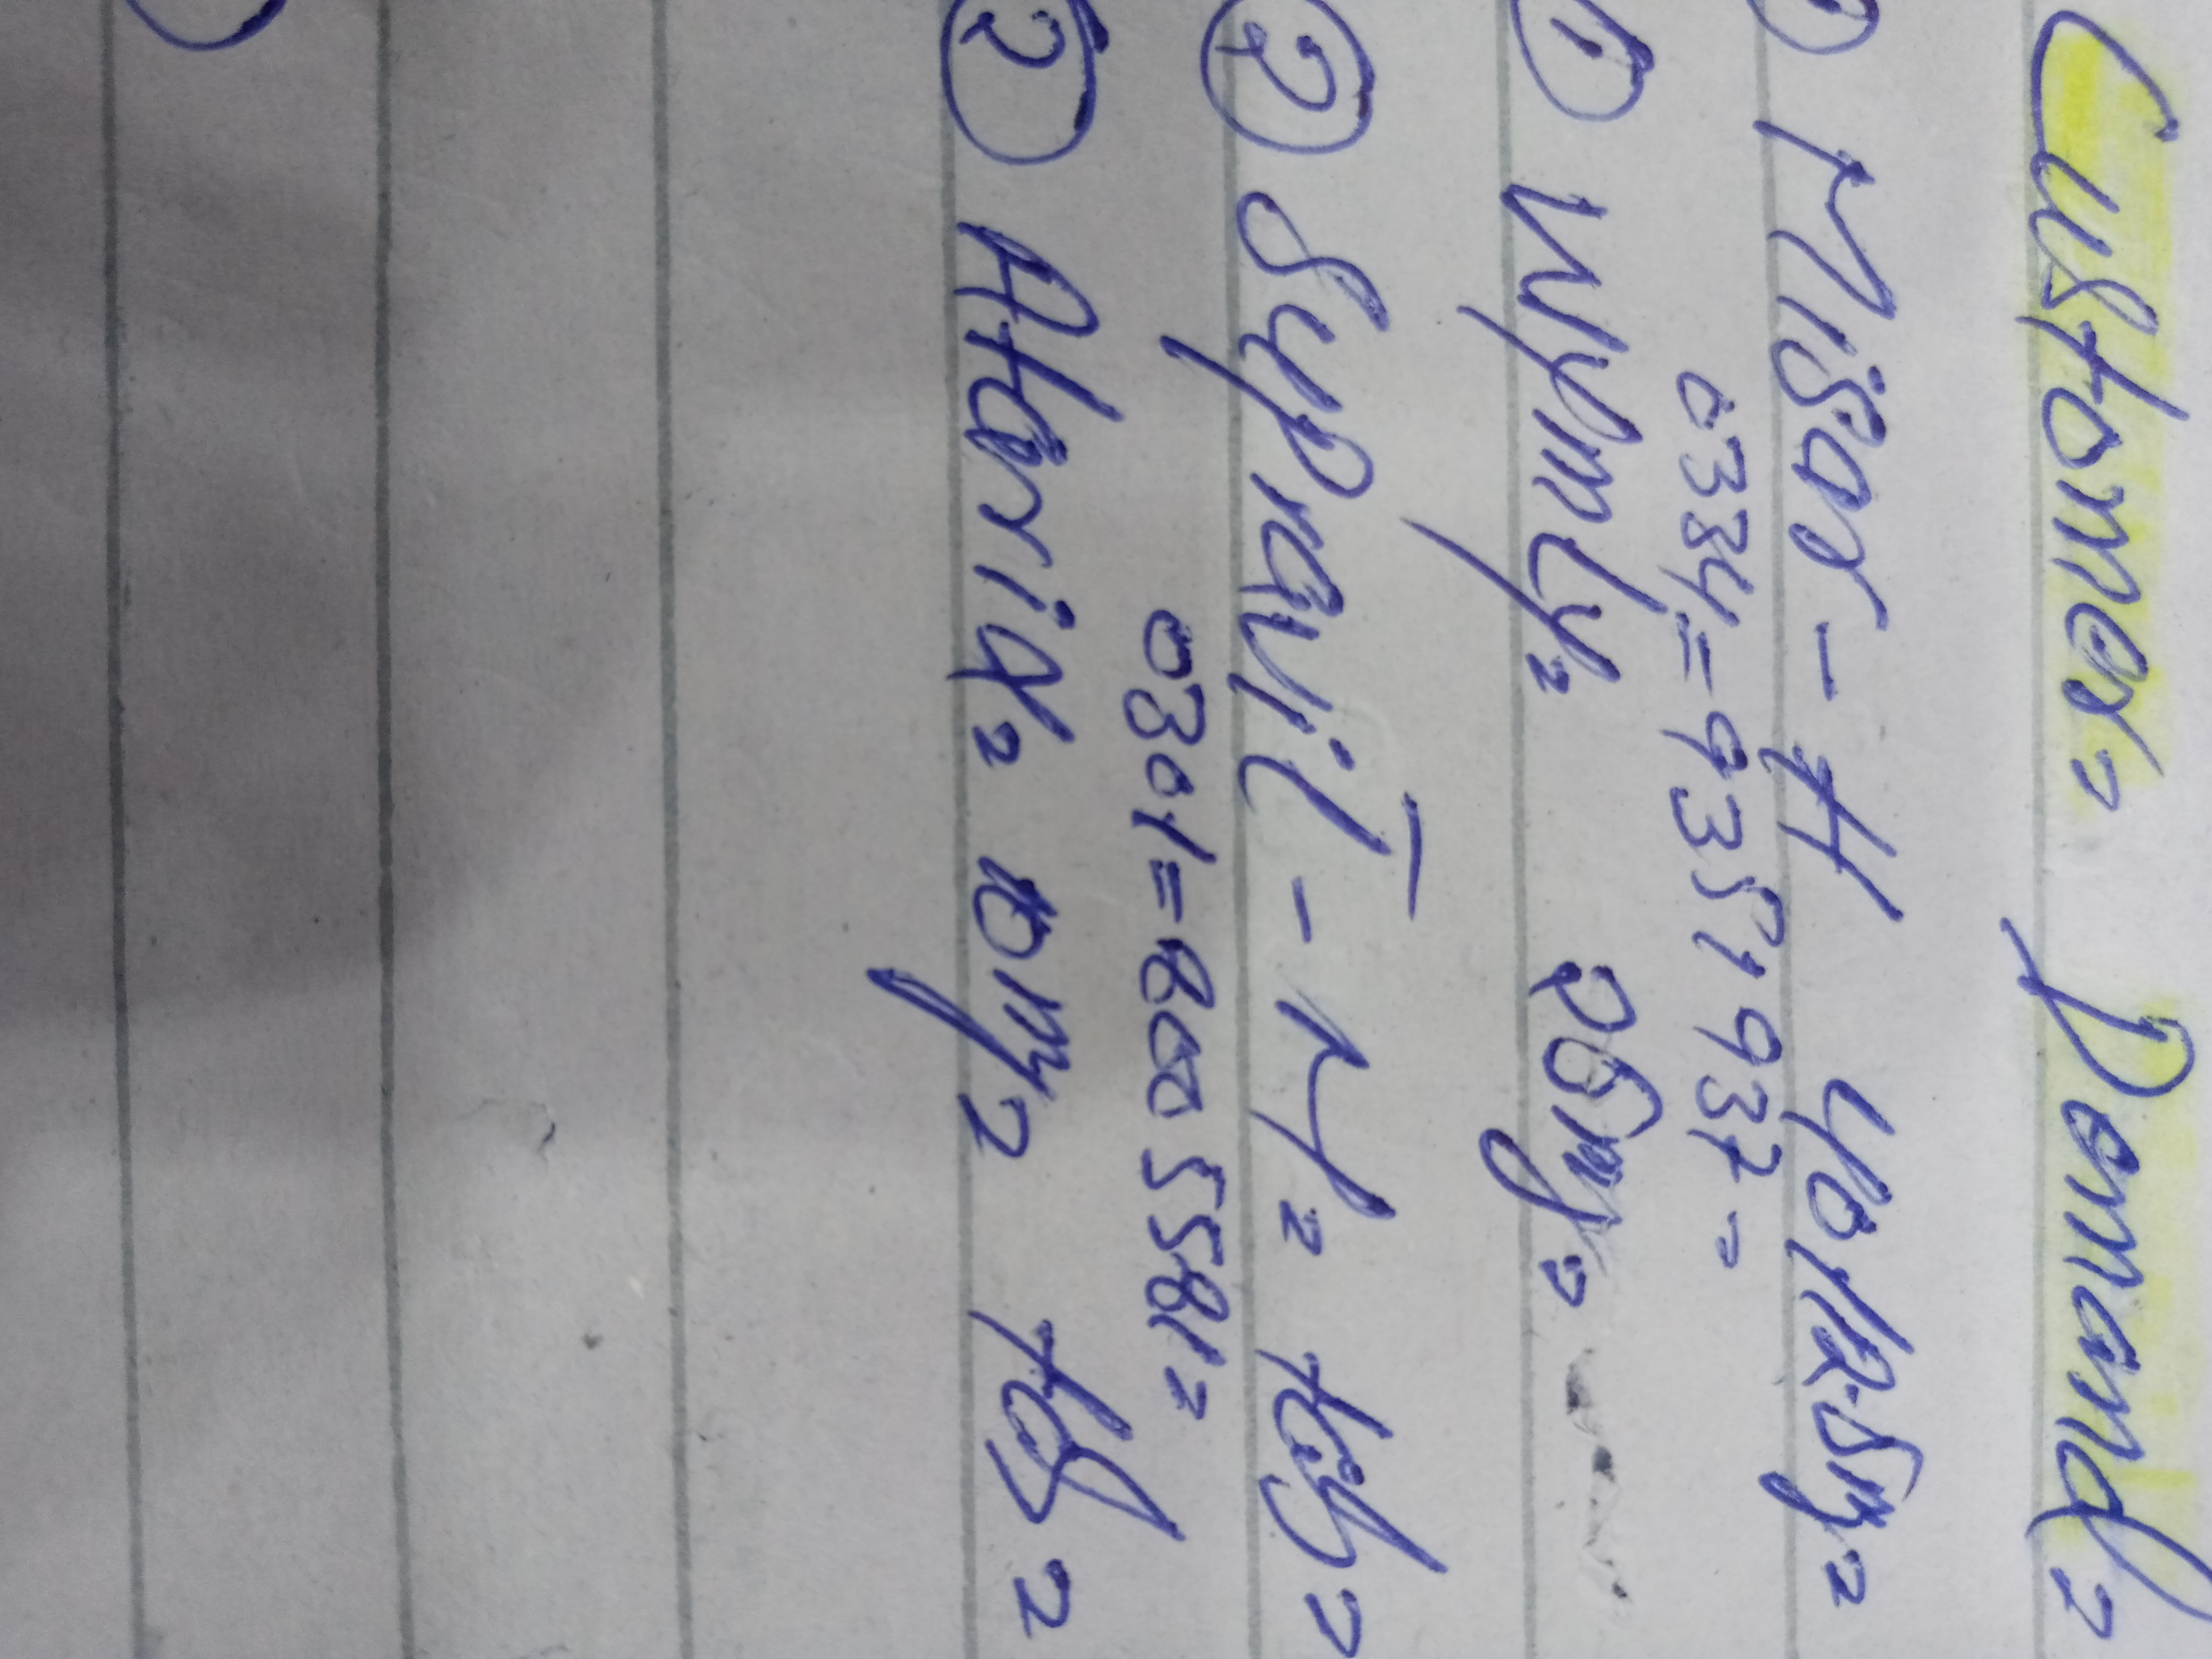 Customer=
Demand=
① Misar-H 40/12.5mg=
0334=9351937=
① Wymly= 25mg=
② Sypravil-M= tab=
0301=8005581=
② Atarix= 10mg= tab=